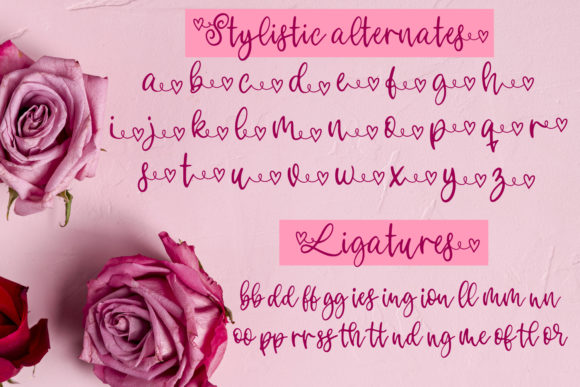 Stylistic alternates
a b c d e f g h
i j k l m n o p q r
s t u v w x y z
Ligatures
bb dd ff gg ies ing ion ll mm nn
oo pp rr ss th tt nd ng me of tl or